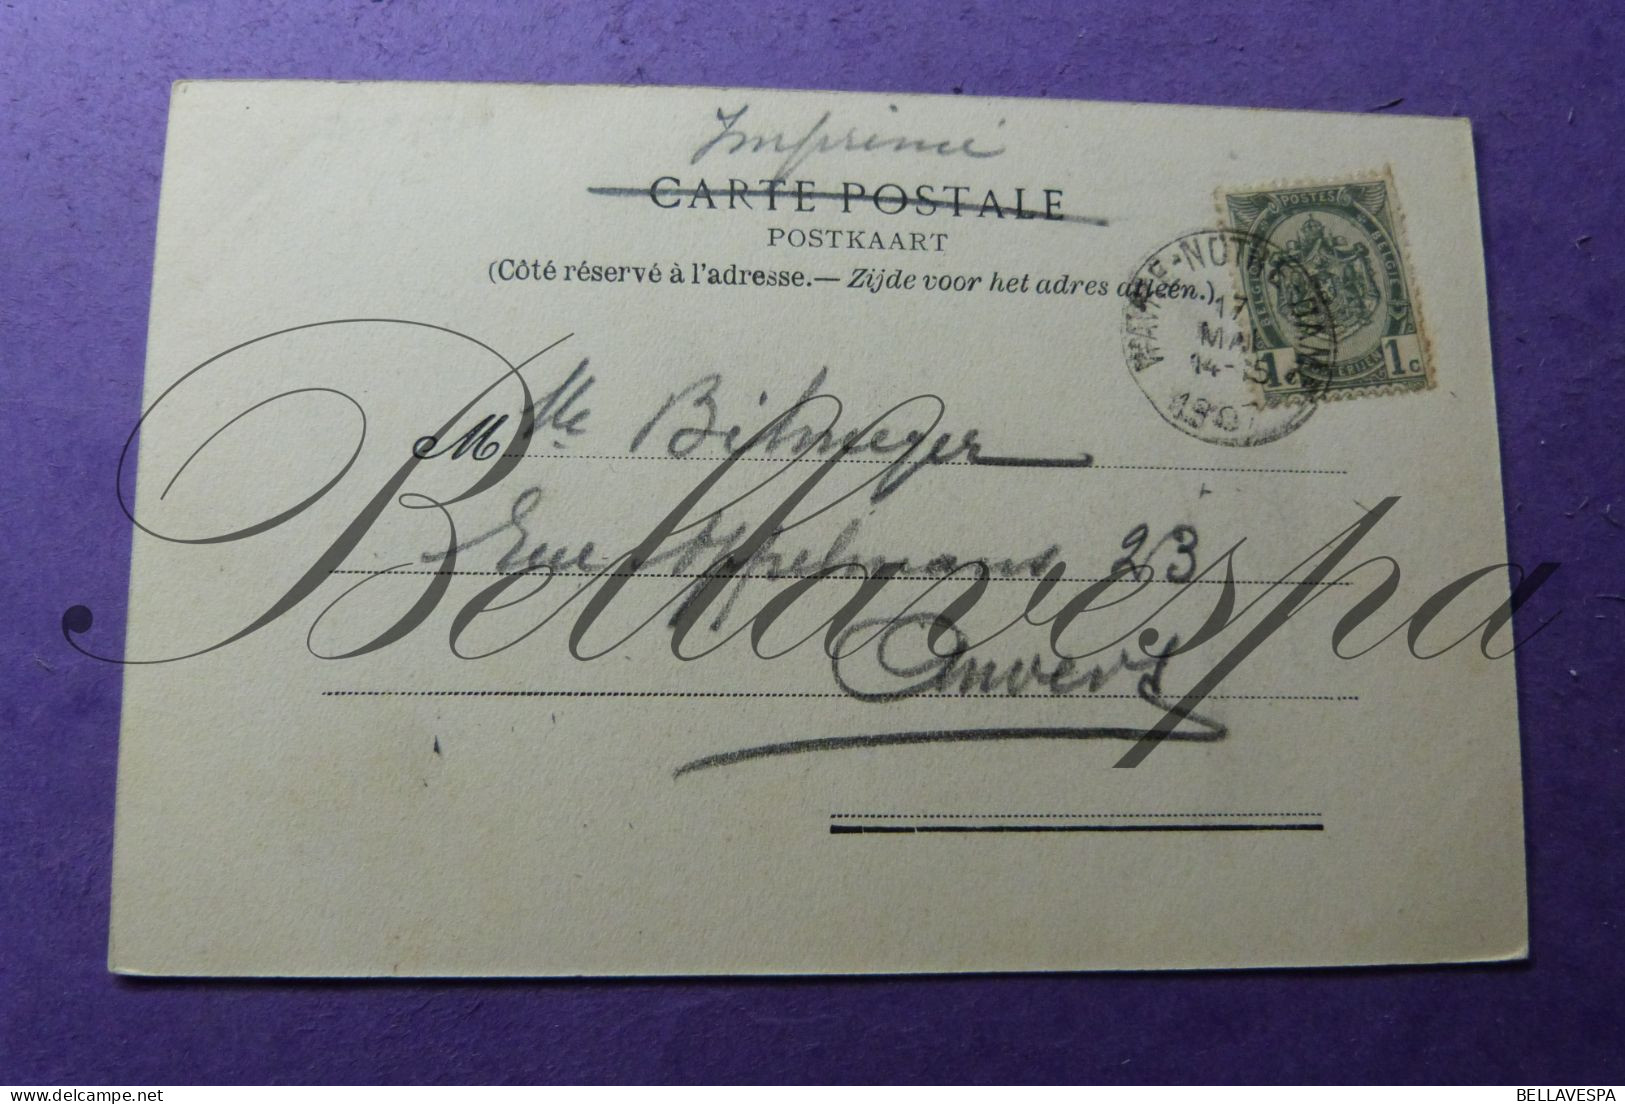 Imprimé
CARTE POSTALE
POSTKAART
(Côté réservé à l'adresse.— Zijde voor het adres alleen.)
POSTES
BELGIQUE BELGIË
1c 1c
WAVRE-NOTRE-DAME
17
MA
14-15
M lle Bilmeyer
Rue Appelmans 23
Anvers
Bellavespa
BELLAVESPA